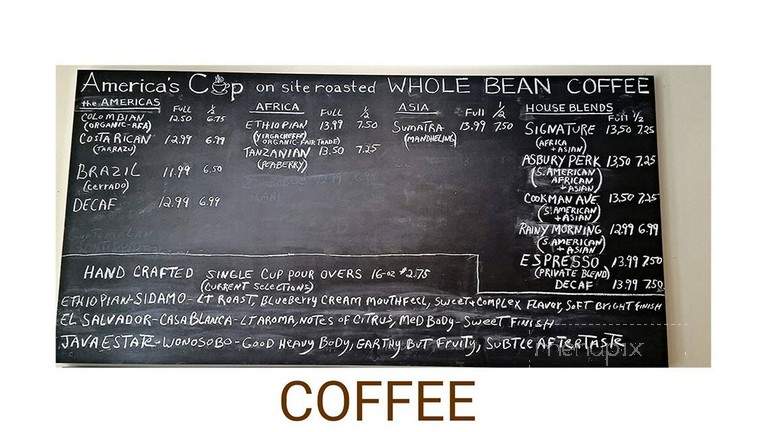 America's Cup on site roasted WHOLE BEAN COFFEE
the AMERICAS FULL ½
COLOMBIAN 12.50 6.75
(ORGANIC-RFA)
COSTA RICAN 12.99 6.99
(TARRAZU)
BRAZIL 11.99 6.50
(cerrado)
DECAF 12.99 6.99
AFRICA FULL ½
ETHIOPIAN 13.99 7.50
(YIRGACHEFFE
ORGANIC-FAIR TRADE)
TANZANIAN 13.50 7.25
(PEABERRY)
ASIA Full ½
SUMATRA 13.99 7.50
(MANDHELING)
HOUSE BLENDS
Full ½
SIGNATURE 13.50 7.25
(AFRICA
+ ASIAN)
ASBURY PERK 13.50 7.25
(S. AMERICAN
AFRICAN
+ ASIAN)
COOKMAN AVE 13.50 7.25
(S. AMERICAN
+ ASIAN)
RAINY MORNING 12.99 6.99
(S. AMERICAN
+ ASIAN)
ESPRESSO 13.99 7.50
(PRIVATE BLEND)
DECAF 13.99 7.50
HAND CRAFTED SINGLE CUP POUR OVERS 16-oz $2.75
(CURRENT SELECTIONS)
ETHIOPIAN-SIDAMO- LT ROAST, BLUEBERRY CREAM MOUTHFEEL, SWEET + COMPLEX FLAVOR, SOFT BRIGHT FINISH
EL SALVADOR-CASABLANCA-LT AROMA, NOTES OF CITRUS, MED BODY- SWEET FINISH
JAVA ESTATE-WONOSOBO-GOOD HEAVY BODY, EARTHY BUT FRUITY, SUBTLE AFTERTASTE
menupix
COFFEE